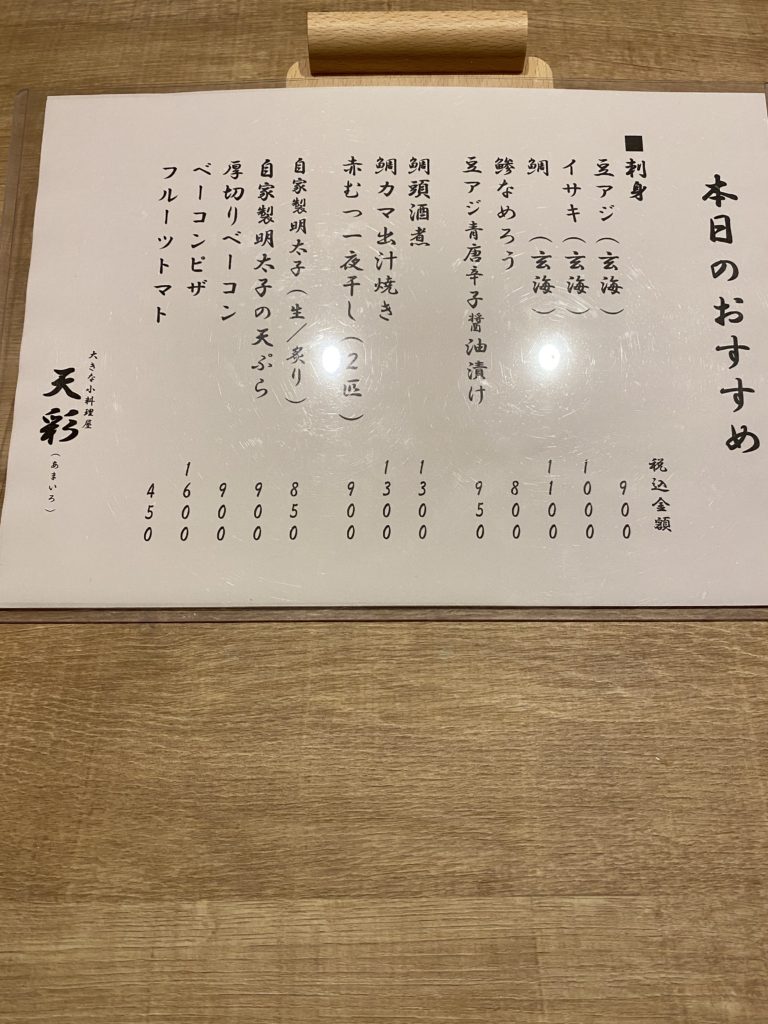 本日のおすすめ
税込金額
■刺身
豆アジ(玄海) 900
イサキ(玄海) 1000
鯛 (玄海) 1100
鯵なめろう 800
豆アジ青唐辛子醤油漬け 950
鯛頭酒煮 1300
鯛カマ出汁焼き 1300
赤むつ一夜干し(2匹) 900
自家製明太子(生/炙り) 850
自家製明太子の天ぷら 900
厚切りベーコン 900
ベーコンピザ 1600
フルーツトマト 450
大きな小料理屋
天彩(あまいろ)